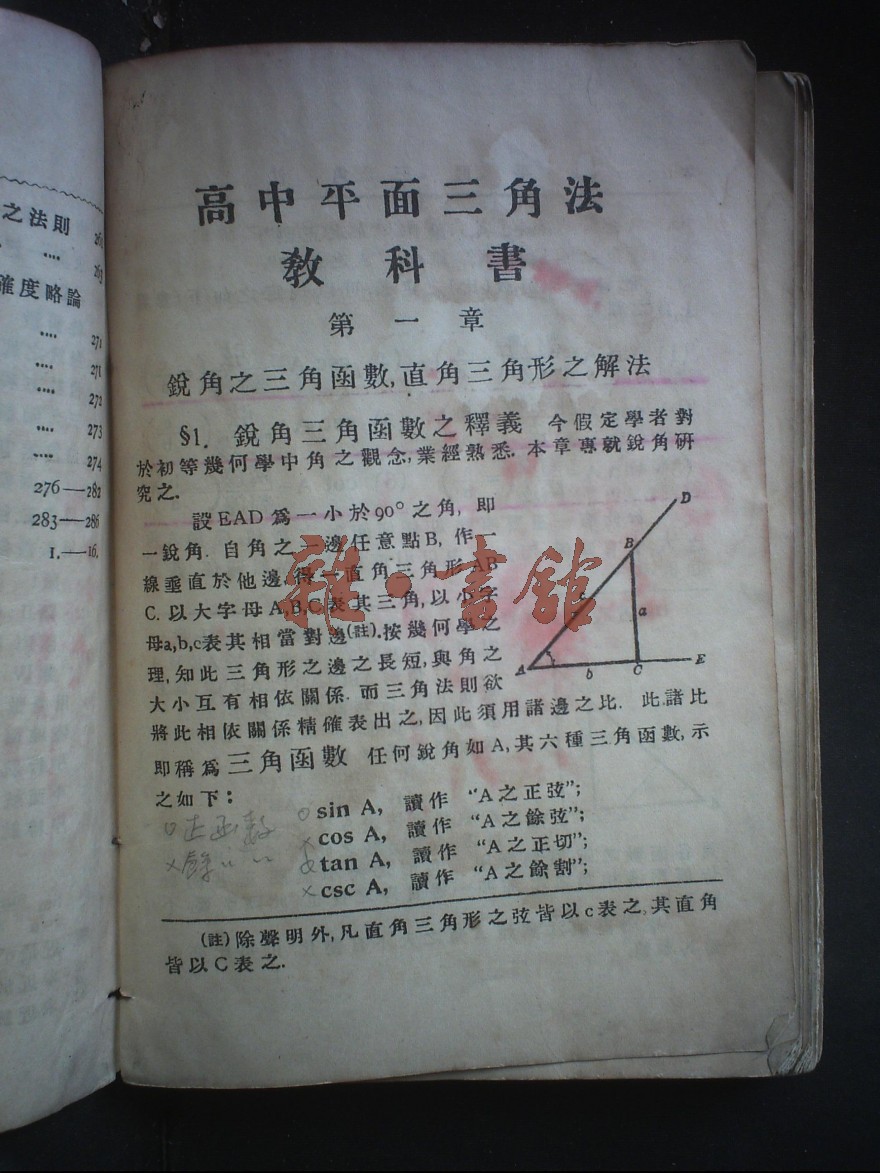 之法則 26
.... 263
確度略論
.... 271
.... 271
.... 272
.... 273
.... 274
276—282
283—286
1.—16.
高中平面三角法
教科書
第一章
銳角之三角函數,直角三角形之解法
§1. 銳角三角函數之釋義 今假定學者對
於初等幾何學中角之觀念,業經熟悉.本章專就銳角研
究之.
設EAD爲一小於90°之角,即
一銳角.自角之一邊任意點B,作一
線垂直於他邊,得一直角三角形AB
C.以大字母A,B,C表其三角,以小字
母a,b,c表其相當對邊(註).按幾何學之
理,知此三角形之邊之長短,與角之
大小互有相依關係.而三角法則欲
將此相依關係精確表出之,因此須用諸邊之比. 此諸比
即稱爲三角函數 任何銳角如A,其六種三角函數,示
之如下:
D
B
c
a
A
b
C
E
○sin A, 讀作 “A之正弦”;
×cos A, 讀作 “A之餘弦”;
tan A, 讀作 “A之正切”;
×csc A, 讀作 “A之餘割”;
○正函數
×餘〃〃
(註)除聲明外,凡直角三角形之弦皆以c表之,其直角
皆以C表之.
雜·書館